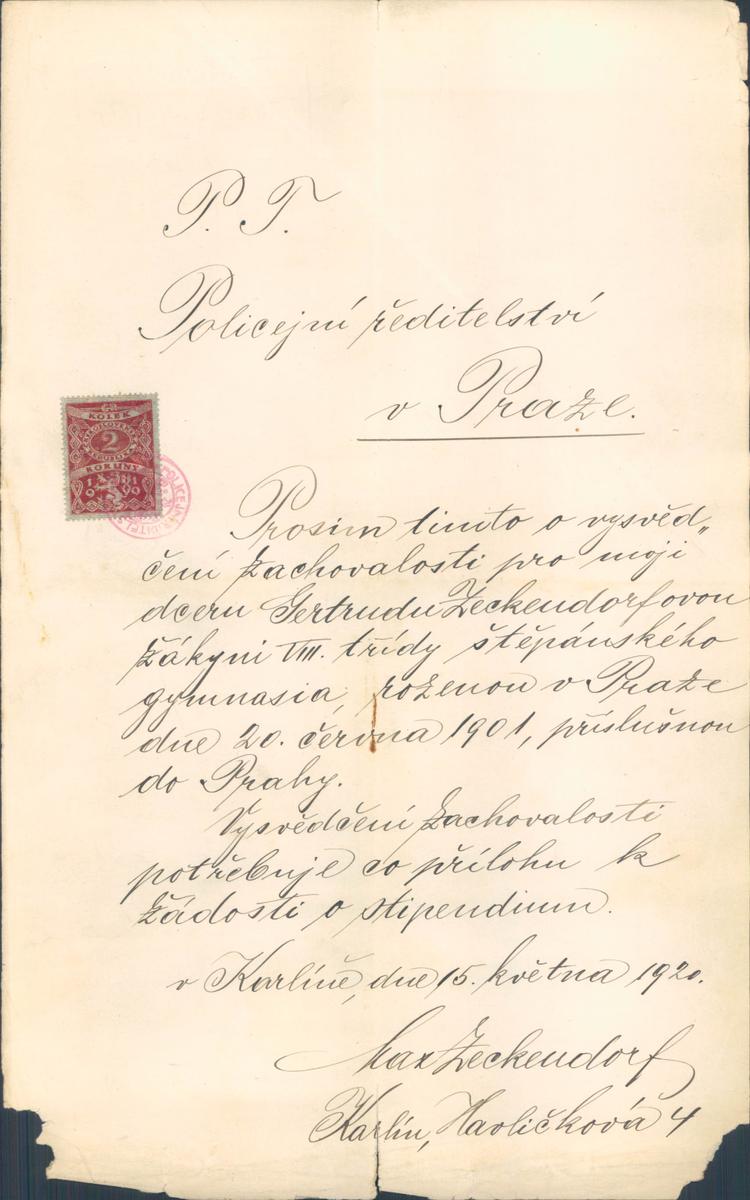 P. T.
Policejní ředitelství
v Praze.
KOLEK
2
KORUNY
1919
Prosím tímto o vysvěd„
čení zachovalosti pro moji
dceru Gertrudu Zeckendorfovou
žákyni VIII. třídy štěpánského
gymnasia, rozenou v Praze
dne 20. června 1901, příslušnou
do Prahy.
Vysvědčení zachovalosti
potřebuje co přílohu k
žádosti o stipendium.
v Karlíně, dne 15. května 1920.
Max Zeckendorf
Karlín, Havlíčková 4